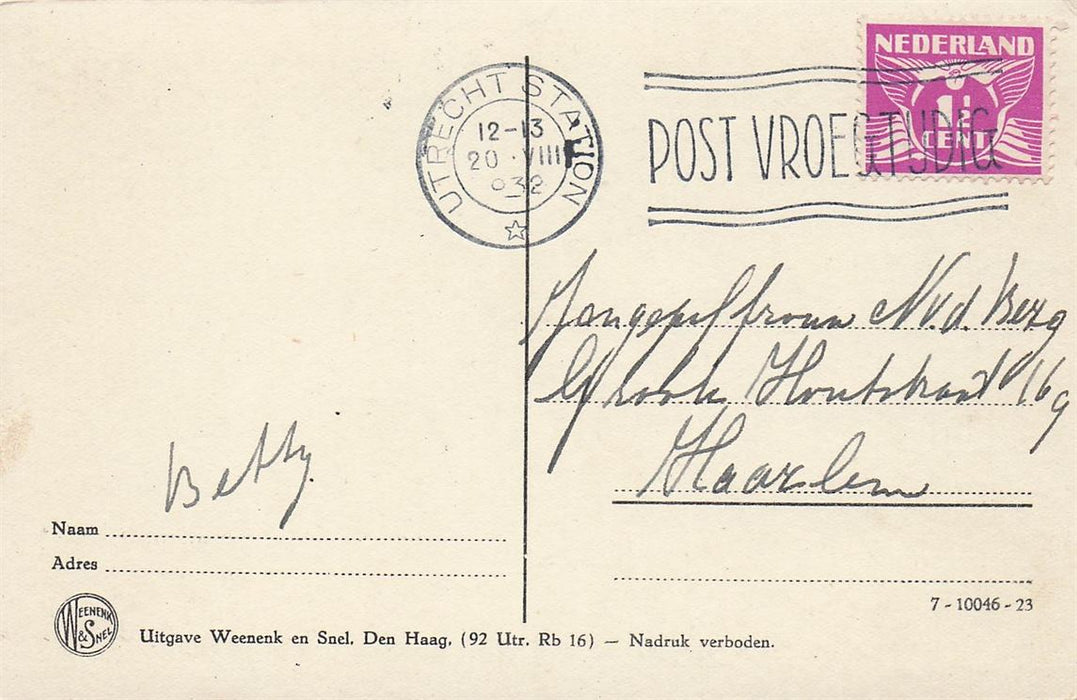 NEDERLAND
1½
CENT
UTRECHT STATION
12-13
20 · VIII
1932
POST VROEGTIJDIG
N. v. d. Berg
Houtstraat 169
Haarlem
Betty
Naam
Adres
7 - 10046 - 23
WEENENK & SNEL
Uitgave Weenenk en Snel, Den Haag, (92 Utr. Rb 16) — Nadruk verboden.